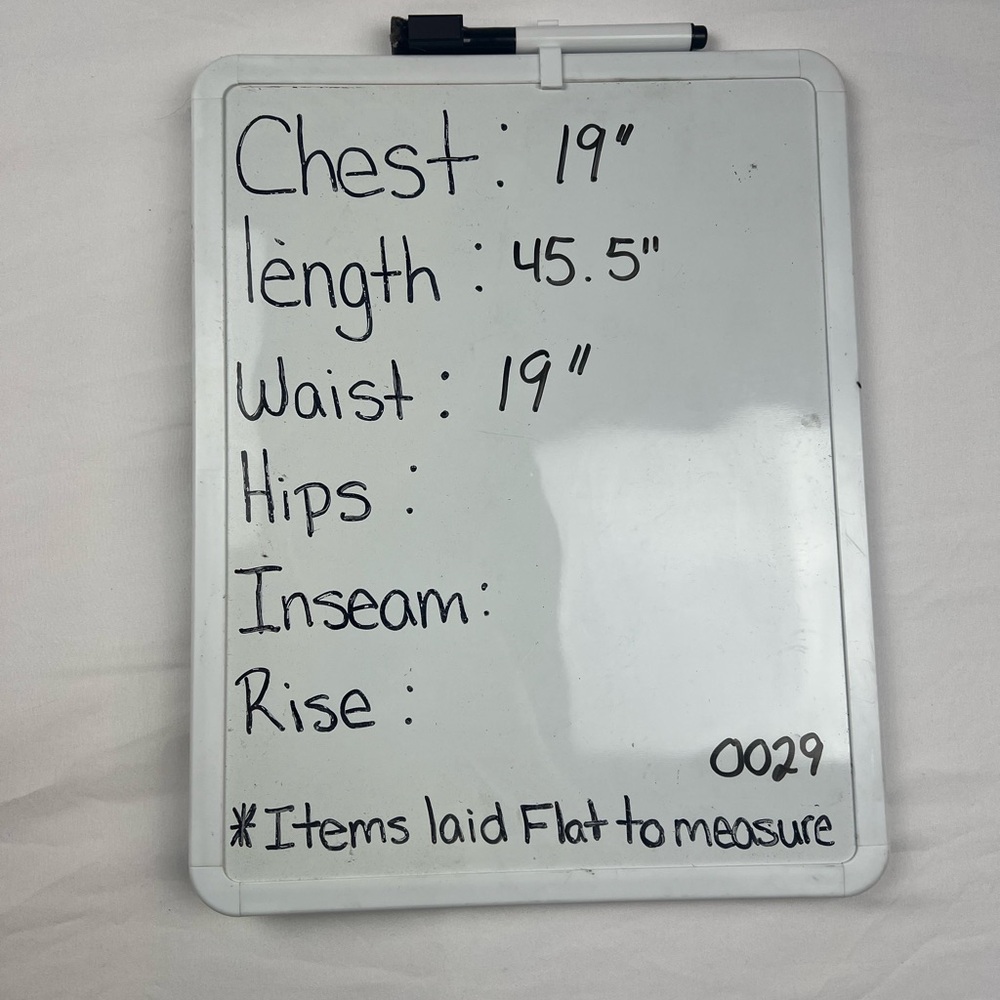 Chest: 19"
length: 45.5"
Waist: 19"
Hips:
Inseam:
Rise:
0029
*Items laid Flat to measure